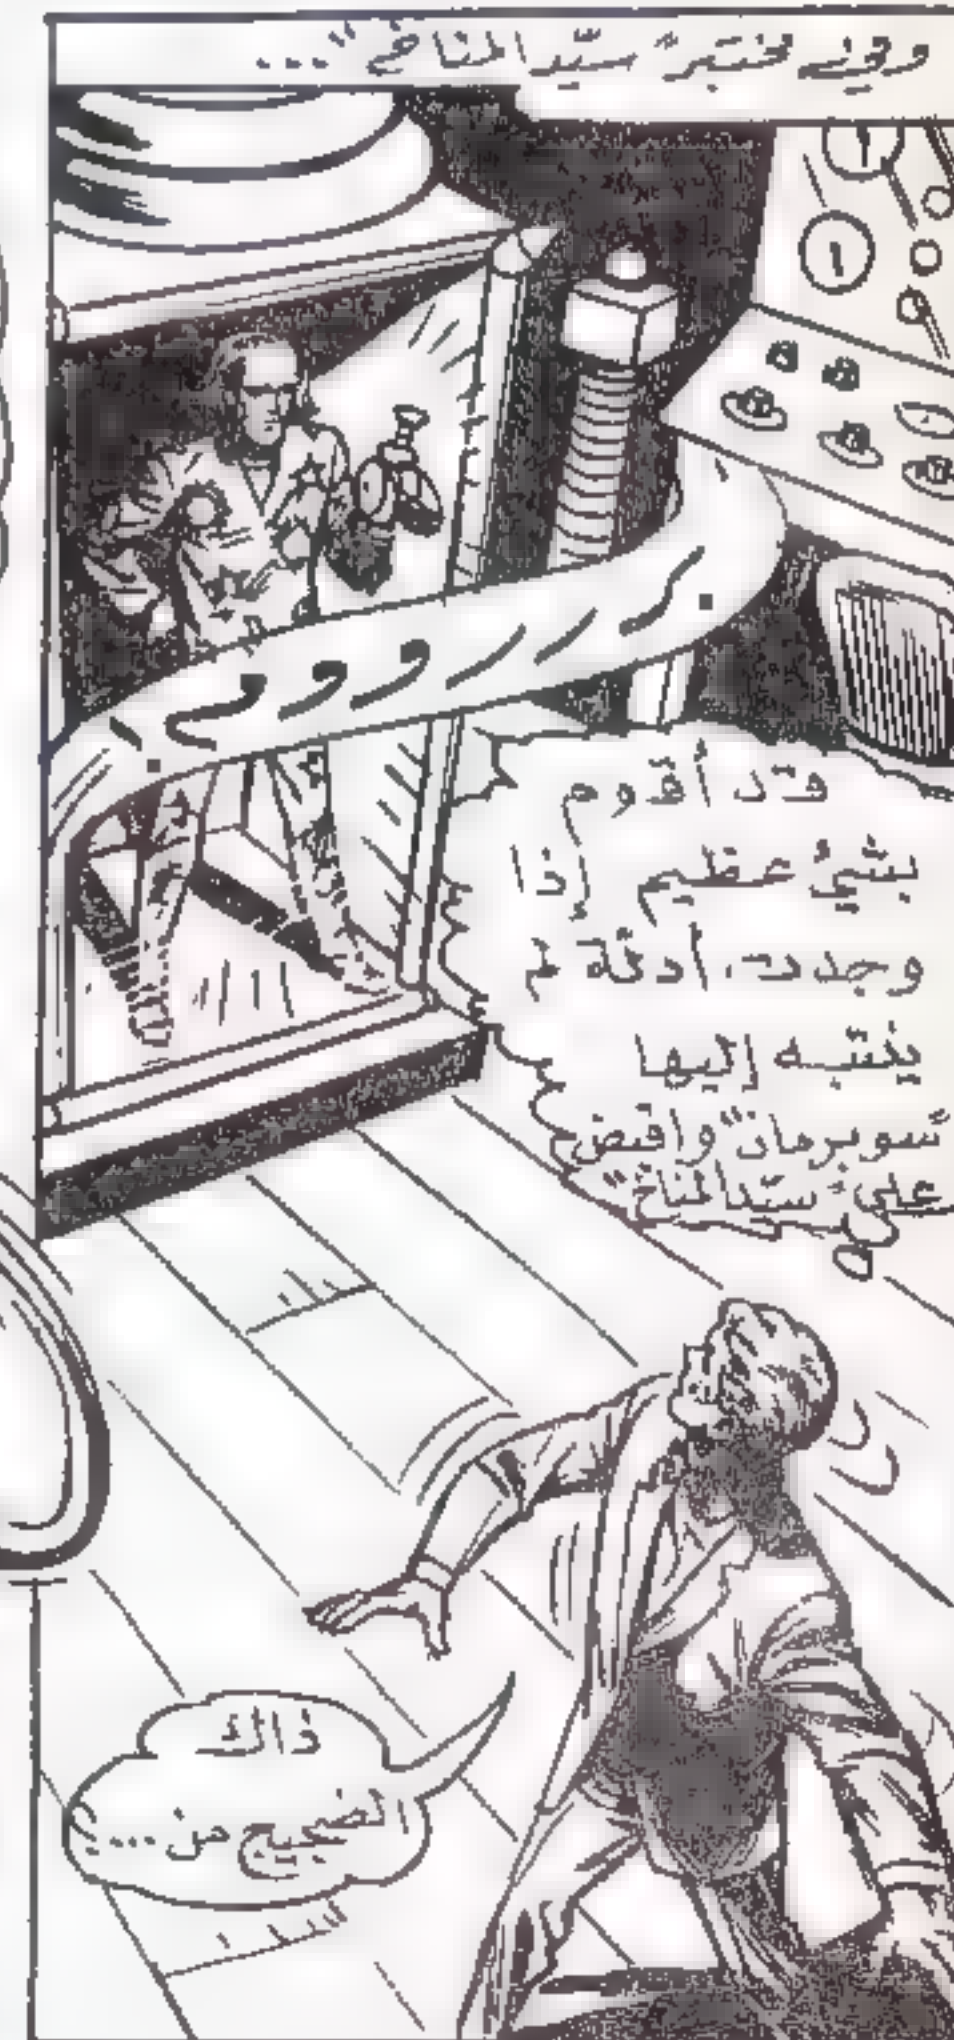 وفي مختبر "سيّد المناخ"...
بررروووم
قد أقوم
بشيءٍ عظيم إذا
وجدت أدلة لم
ينتبه إليها
"سوبرمان" واقبض
على "سيّد المناخ"
ذاك
الضجيج من...؟